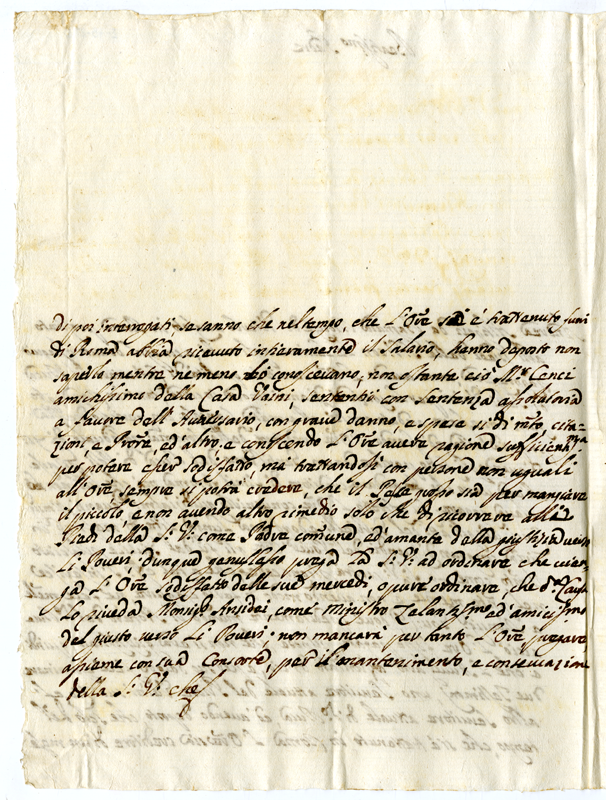 di poi interrogati se sanno che nel tempo, che l'Ore si è trattenuto fuori
di Roma abbia ricevuto intieramente il salario, hanno deposto non
saperlo mentre ne meno lo conoscevano, non ostante ciò Mr. Cenci
amichissimo della Casa Vaini, sententiò con sentenza assolutoria
a favore dell'Avversario, con grave danno, e spese si di mto, cita=
zioni, e Prove, ed'altro, e conoscendo l'Ore avere ragione sufficientma
per potere esser sodisfatto, ma trattandosi con persone non uguali
all'Ore, sempre si potrà credere, che il Pesce grosso sia per mangiare
il piccolo, e non avendo altro rimedio solo che di ricorrere alli
Piedi della S. V. come Padre comune, ed'amante della giustizia verso
Li Poveri, dunque genuflesso prega La S. V. ad ordinare che ven
ga L'Ore sodisfatto delle sue mercedi, opure ordinare, che da Causa
Lo riveda Monsigr Ansidei, come ministro Zelantissmo ed'amicissmo
del giusto verso Li Poveri; non mancarà per tanto L'Ore pregare
assieme con sua Consorte, per il mantenimento, e conservazione
della S. V. che